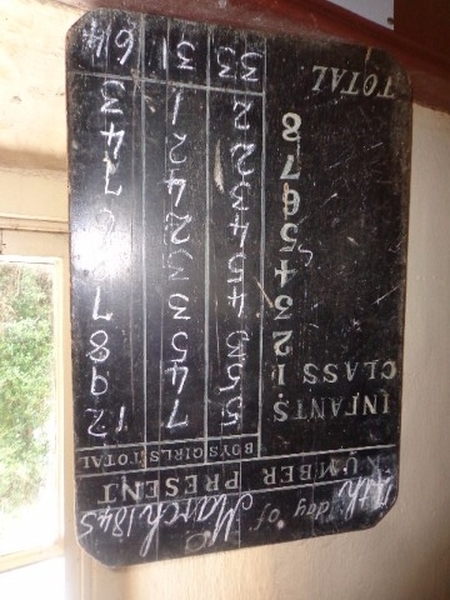 day of March 1845
NUMBER PRESENT
BOYS GIRLS TOTAL
INFANTS 5 7 12
CLASS 1 5 4 9
2 3 5 8
3 4 3 7
4 5 3 8
5 4 2 6
6 3 4 7
7 2 2 4
8 2 1 3
TOTAL 33 31 64